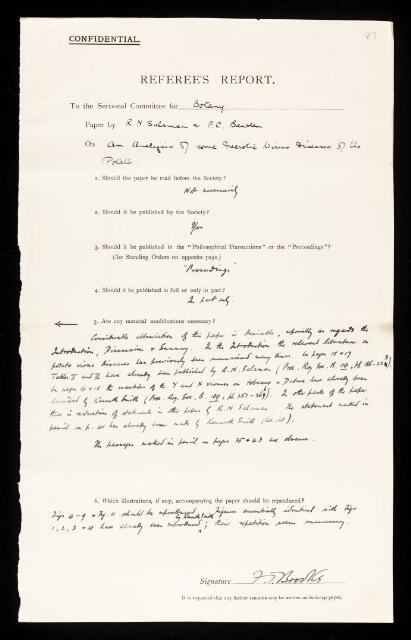 87
CONFIDENTIAL.
REFEREE'S REPORT.
To the Sectional Committee for Botany
Paper by R. N. Salaman & F. C. Bawden
On An Analysis of some Necrotic Virus Diseases of the
Potato.
1. Should the paper be read before the Society?
Not necessarily
2. Should it be published by the Society?
Yes
3. Should it be published in the "Philosophical Transactions" or the "Proceedings"?
(See Standing Orders on opposite page.)
"Proceedings"
4. Should it be published in full or only in part?
In part only.
5. Are any material modifications necessary?
Considerable abbreviation of this paper is desirable, especially as regards the
Introduction, Discussion & Summary. In the Introduction the relevant literature on
potato virus diseases has previously been summarised many times. In pages 15 & 17
Tables I and II have already been published by R. N. Salaman (Proc. Roy. Soc. B. 110, pp. 186-224)
In pages 14 & 15 the reactions of the Y and X viruses on tobacco & Datura have already been
described by Kenneth Smith (Proc. Roy. Soc. B. 109, pp. 251-267). In other parts of the paper
there is reiteration of statements in other papers by R. N. Salaman. The statement marked in
pencil on p. has already been made by Kenneth Smith (loc. cit.).
The passages marked in pencil on pages 35 & 43 are obscure.
6. Which illustrations, if any, accompanying the paper should be reproduced?
Figs 4-9 & Fig. 11 should be reproduced. Figures essentially identical with Figs
1, 2, 3 & 10 have already been reproduced by Kenneth Smith; their repetition seems unnecessary.
Signature F. T. Brooks
It is requested that any further remarks may be written on foolscap paper.